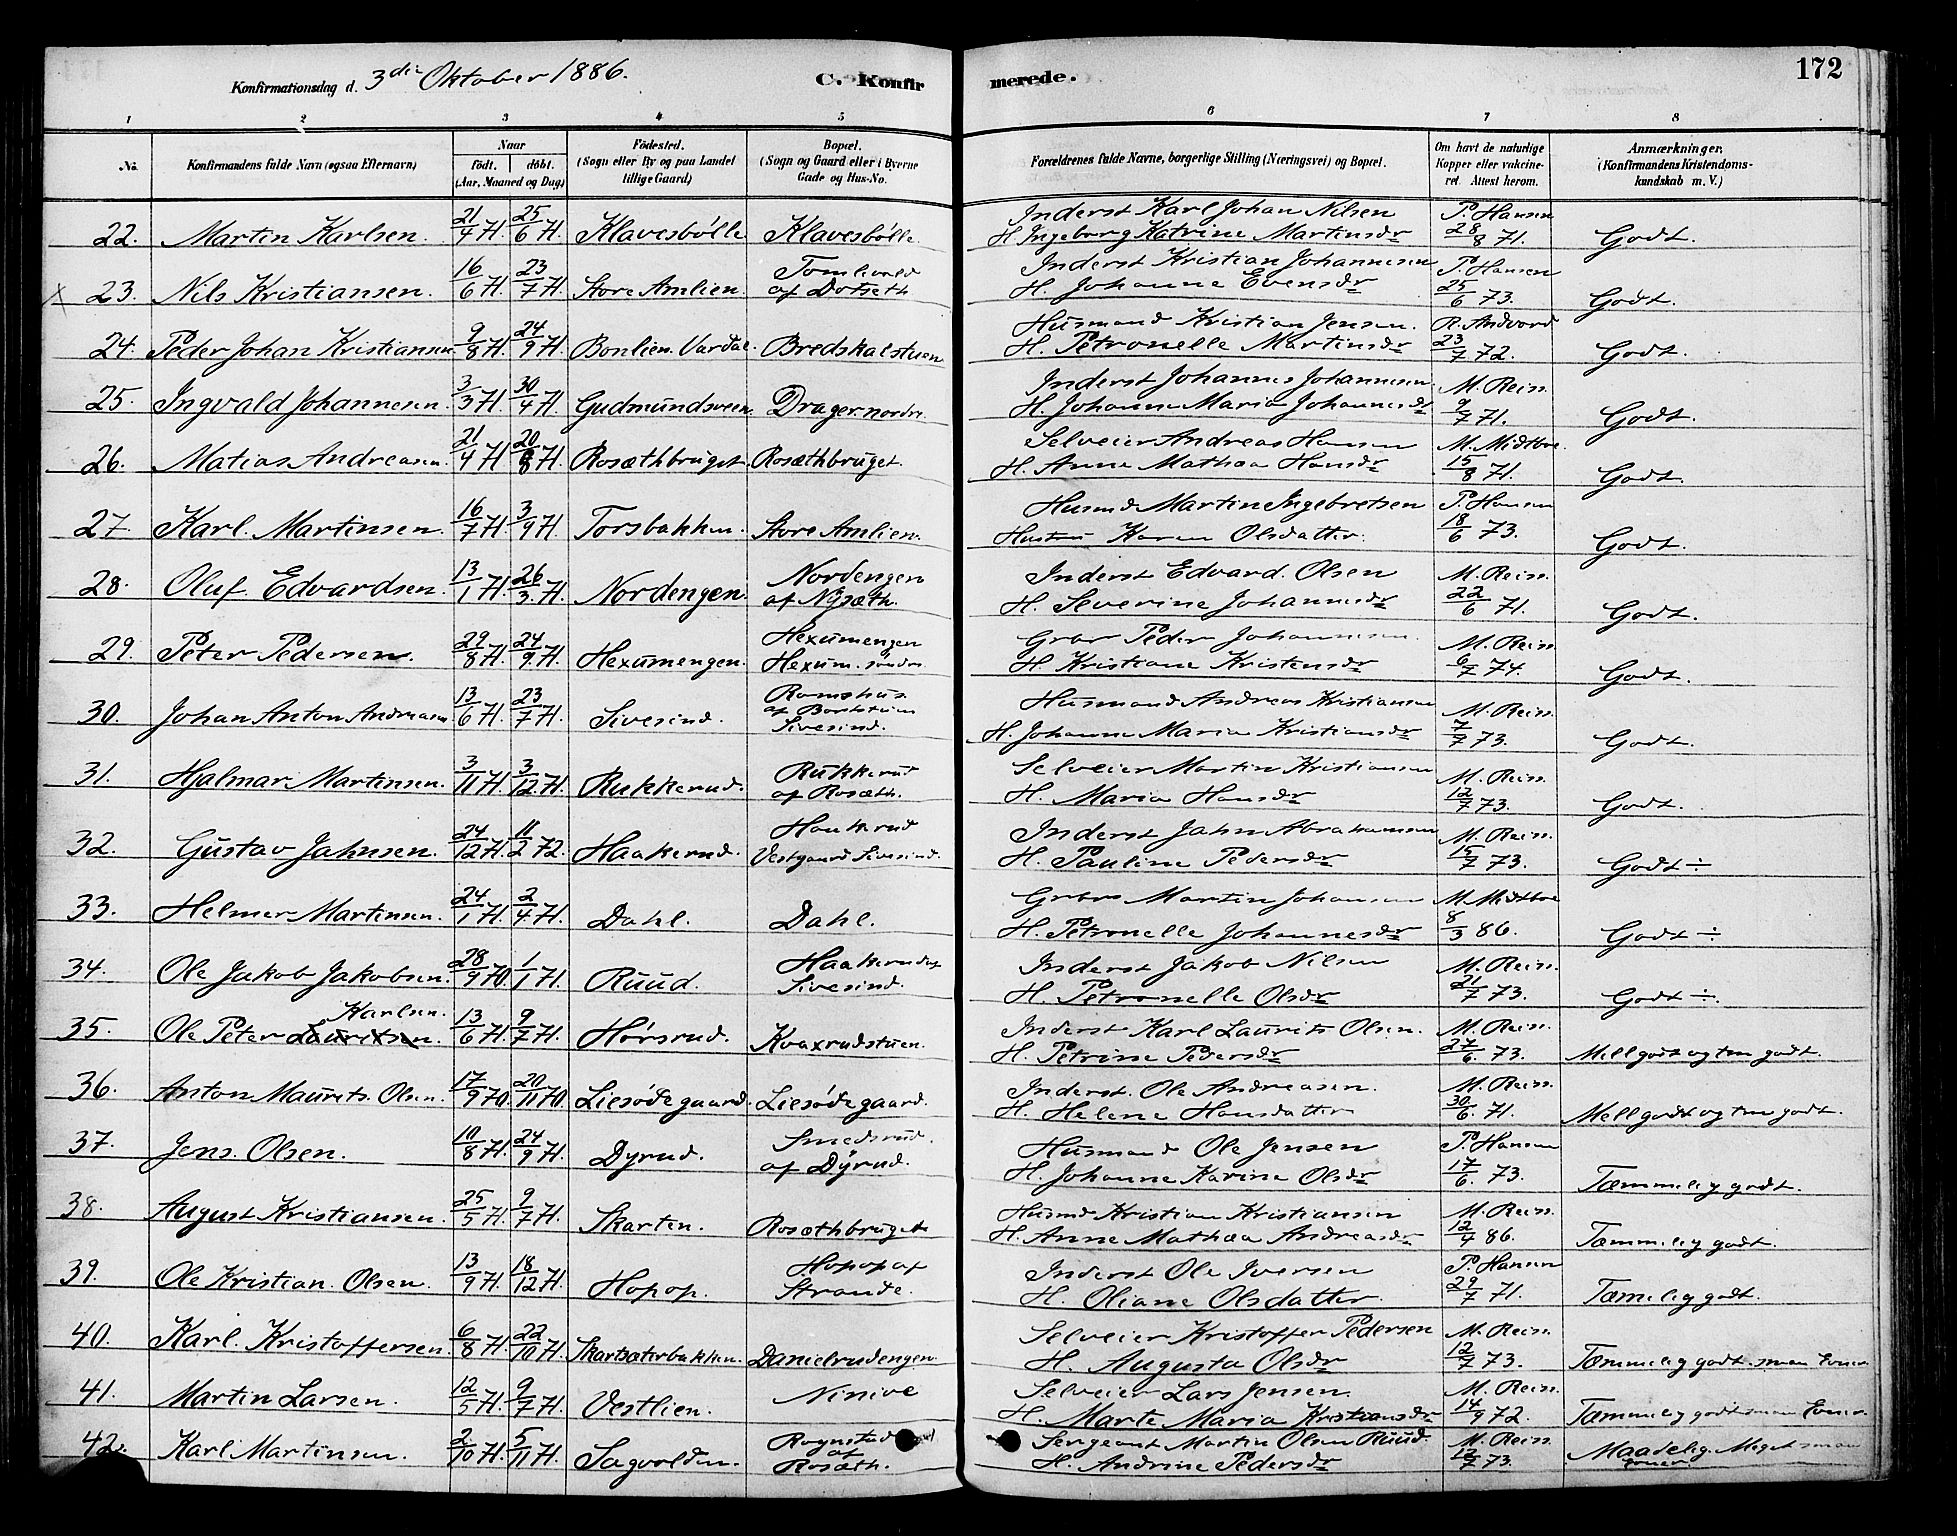 Konfirmationsdag d. 3die Oktober 1886. C. Konfirmerede. 172
1 2 3 4 5 6 7 8
No. Konfirmandens fulde Navn (ogsaa Efternavn) Naar født. døbt. (Aar, Maaned og Dag) Fødested. (Sogn eller By og paa Landet tillige Gaard) Bopæl. (Sogn og Gaard eller i Byerne Gade og Hus-No. Forældrenes fulde Navne, borgerlige Stilling (Næringsvei) og Bopæl. Om havt de naturlige Kopper eller vakcineret Attest herom. Anmærkninger. (Konfirmandens Kristendomskundskab m. V.)
22. Martin Karlsen. 21/4 71. 25/6 71. Klavesbölle Klavesbölle Inderst Karl Johan Nilsen H. Ingeborg Katrine Martinsdr P. Hansen 28/8 71. Godt.
x 23. Nils Kristiansen. 16/6 71. 23/7 71. Store Amlien. af Dotseth Inderst Kristian Johannesen H. Johanne Evensdr P. Hansen 25/6 73. Godt.
24. Peder Johan Kristiansen 9/8 71. 24/9 71. Bonlien. Vardal. Bredskalstuen Husmand Kristian Jensen. H. Petronelle Martinsdr R. Andvord 23/7 72. Godt.
25. Ingvald Johannesen. 3/3 71. 30/4 71. Gudmundsveen. Drager nordre. Inderst Johannes Johannesen H. Johanne Maria Johannesdr M. Rein. 9/7 71. Godt.
26. Matias Andreasen. 21/4 71 20/8 71. Rosæthbruget. Rosæthbruget. Selveier Andreas Hansen H. Anne Mathea Hansdr M. Midtboe. 15/8 71. Godt.
27. Karl. Martinsen. 16/7 71. 3/9 71. Torsbakken. Store Amlien. Husmd Martin Ingebretsen Hustru Karen Olsdatter. P. Hansen 18/6 73. Godt.
28. Oluf. Edvardsen. 13/1 71. 26/3 71. Nordengen. Nordengen af Nysæth. Inderst Edvard. Olsen H. Severine Johannesdr M. Rein. 22/6 71. Godt.
29. Peter Pedersen. 29/8 71. 24/9 71. Hexumengen. Hexumengen Hexum. söndre. Peder Johannesen. H. Kristiane Kristensdr M. Rein. 6/7 74. Godt.
30. Johan Anton Andreasen. 13/6 71. 23/7 71. Sivesind. Sivesind. Husmand Andreas Kristiansen H. Johanne Maria Kristiansdr M. Rein. 7/7 73. Godt.
31. Hjalmar Martinsen. 3/11 71. 3/12 71. Rukkerud. Rukkerud af Rosæth. Selveier Martin Kristiansen H. Maria Hansdr M. Rein. 12/7 73. Godt.
32. Gustav Jahnsen. 24/12 71. 11/2 72. Haakerud. Haakerud Vestgaard Sivesind. Inderst Jahn Abrahamsen H. Pauline Pedersdr M. Rein. 15/7 73. Godt ÷
33. Helmer Martinsen. 24/1 71. 2/4 71. Dahl. Dahl. Martin Johansen H. Petronelle Johannesdr M. Midtboe 8/3 86. Godt ÷
34. Ole Jakob Jakobsen. 28/9 70. 1/1 71. Ruud. Haakerud af Sivesind. Inderst Jakob Nilsen H. Petronelle Olsdr M. Rein. 21/7 73. Godt ÷.
35. Ole Peter Lauritsen. Karlsen. 13/6 71. 9/7 71. Hörsrud. Kvaxrudstuen. Inderst Karl Laurits Olsen. H. Petrine Pedersdr M. Rein. 27/6. 73. Mell godt og tm godt.
36. Anton Maurits. Olsen. 17/9 70. 20/11 70. Liesödegaard. Liesödegaard. Inderst. Ole Andreasen. H. Helene Hansdatter M. Rein. 30/6. 71. Mell godt og tm godt.
37. Jens. Olsen. 10/8 71. 24/9 71. Dyrud. Smedsrud. af Dyrud. Husmand Ole Jensen H. Johanne Karine Olsdr P. Hansen 17/6. 73. Tæmmelig godt.
38. August Kristiansen. 25/5 71. 9/7 71. Skarten. Rosæthbruget Husmd Kristian Kristiansen H. Anne Mathea Andreasdr M. Rein. 12/4 86. Tæmmelig godt.
39. Ole Kristian. Olsen. 13/9 71. 18/12 71. Hopop. Hopop af Strande. Inderst Ole Iversen H. Oliane Olsdatter. P. Hansen 29/7 71. Tæmelig godt.
40. Karl. Kristoffersen. 6/8 71. 22/10 71. Skartsæterbakken. Danielrudengen. Selveier Kristoffer Pedersen H. Augusta Olsdr M. Rein. 12/7 73. Tæmmelig godt. smaa Evner.
41. Martin Larsen. 12/5 71. 9/7 71. Vestlien. Ninive Selveier Lars Jensen. H. Marte Maria Kristiansdr M. Rein. 14/9 72. Tæmmelig godt smaa Evner.
42. Karl. Martinsen. 2/10 71. 5/11 71. Sagvolden. Rognstad af Rosæth. Sergeant Martin Olsen Ruud. H. Andrine Pedersdr M. Rein. 12/7 73. Maadelig. Meget smaa Evner.